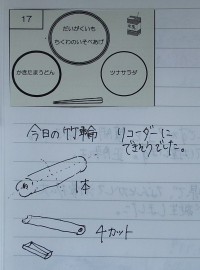 17
だいがくいも
ちくわのいそべあげ
かきたまうどん
ツナサラダ
今日の竹輪 リコーダーに
できそうでした。
1本
4カット